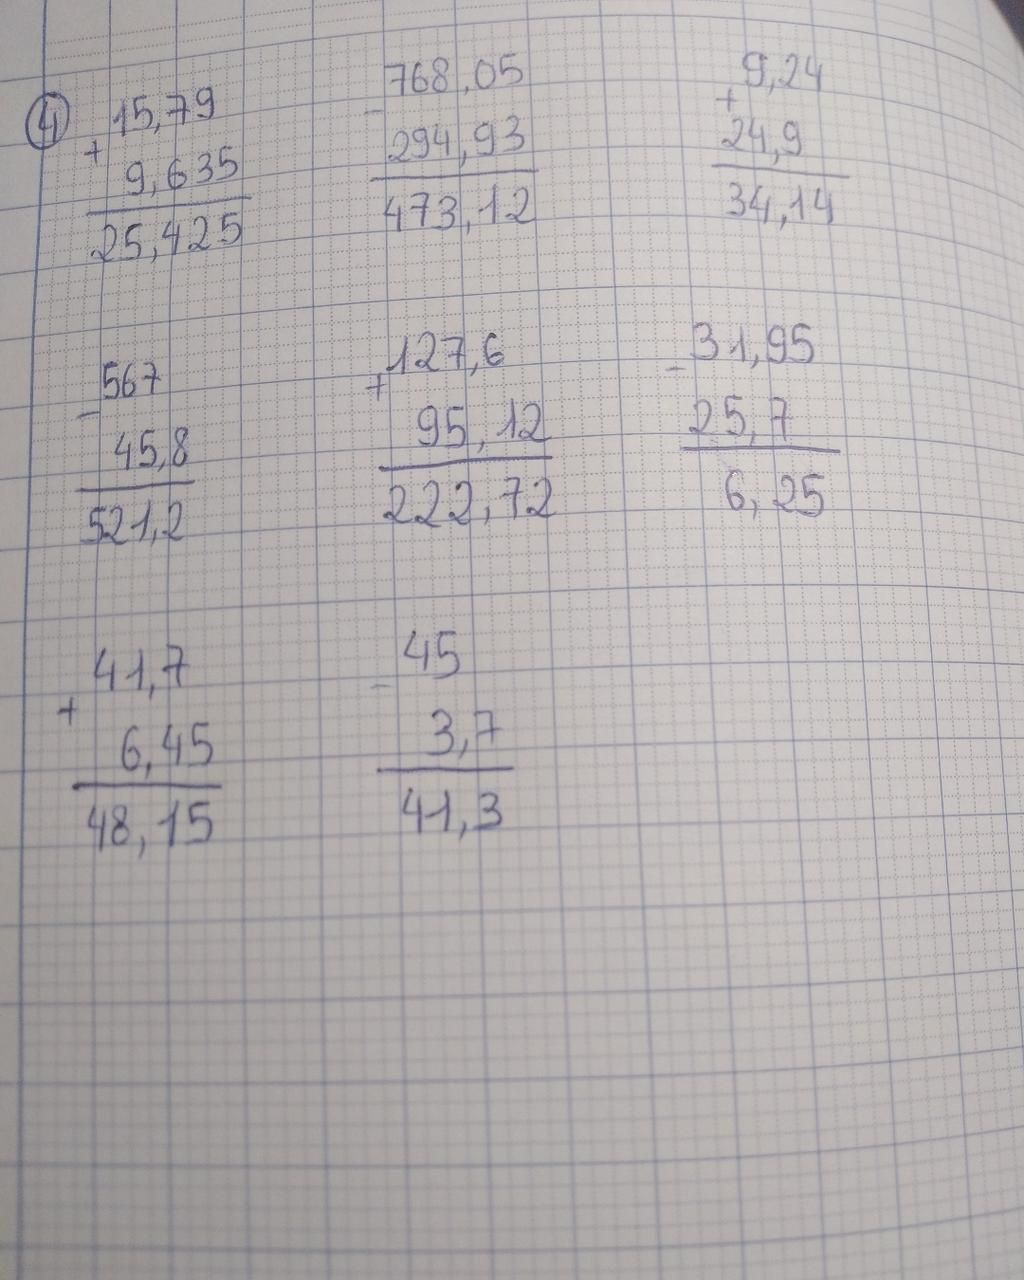 4
15,79
+
9,635
25,425
768,05
-
294,93
473,12
9,24
+
24,9
34,14
567
-
45,8
521,2
127,6
+
95,12
222,72
31,95
-
25,7
6,25
41,7
+
6,45
48,15
45
-
3,7
41,3